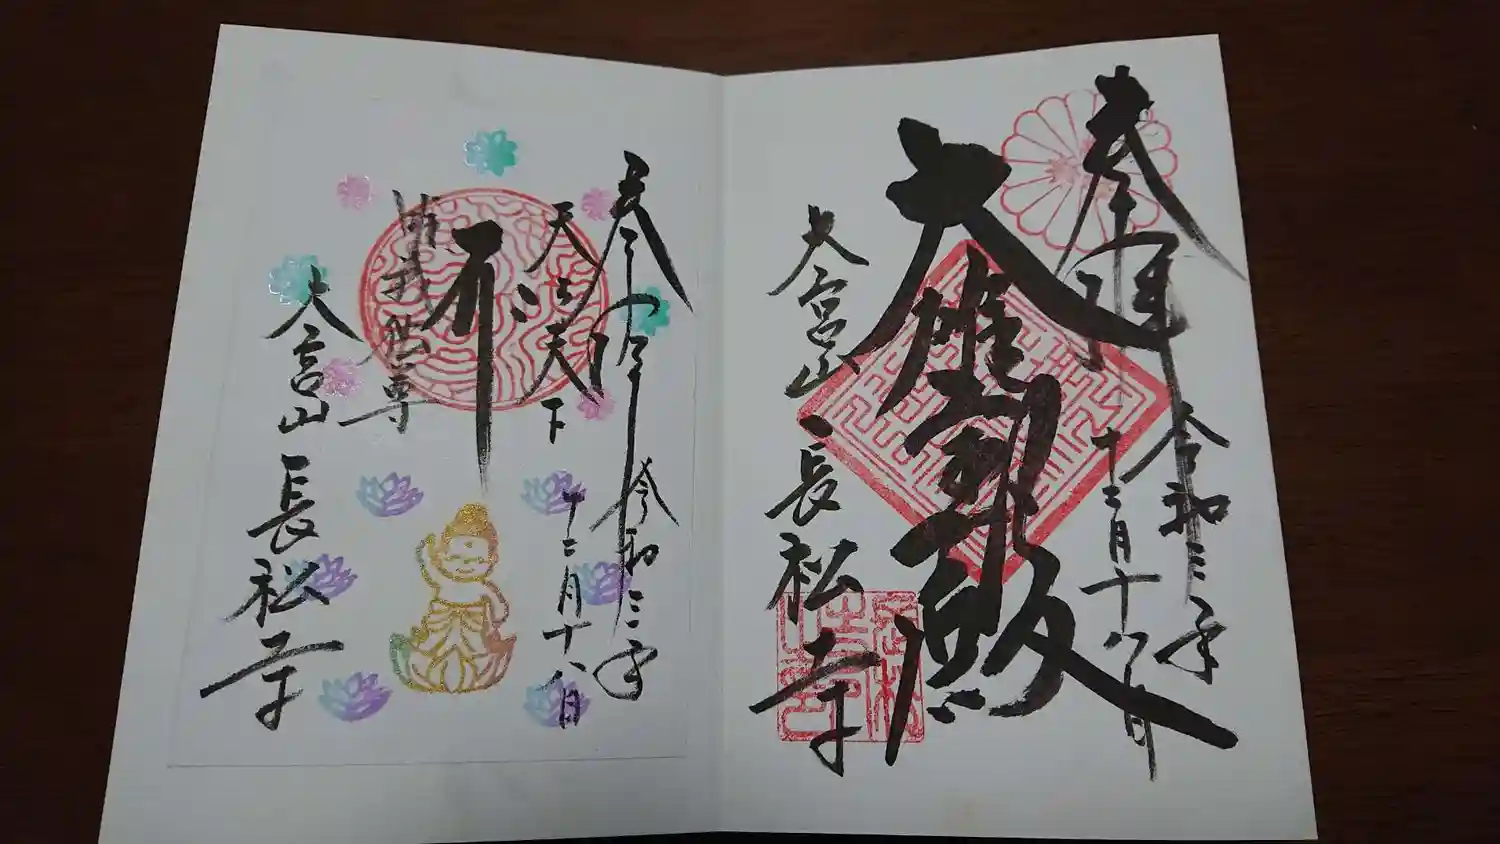 奉拝
令和三年
十二月十八日
大雄寳殿
大宮山
長松寺
奉拝
令和三年
十二月十八日
天上天下
唯我独尊
大宮山
長松寺